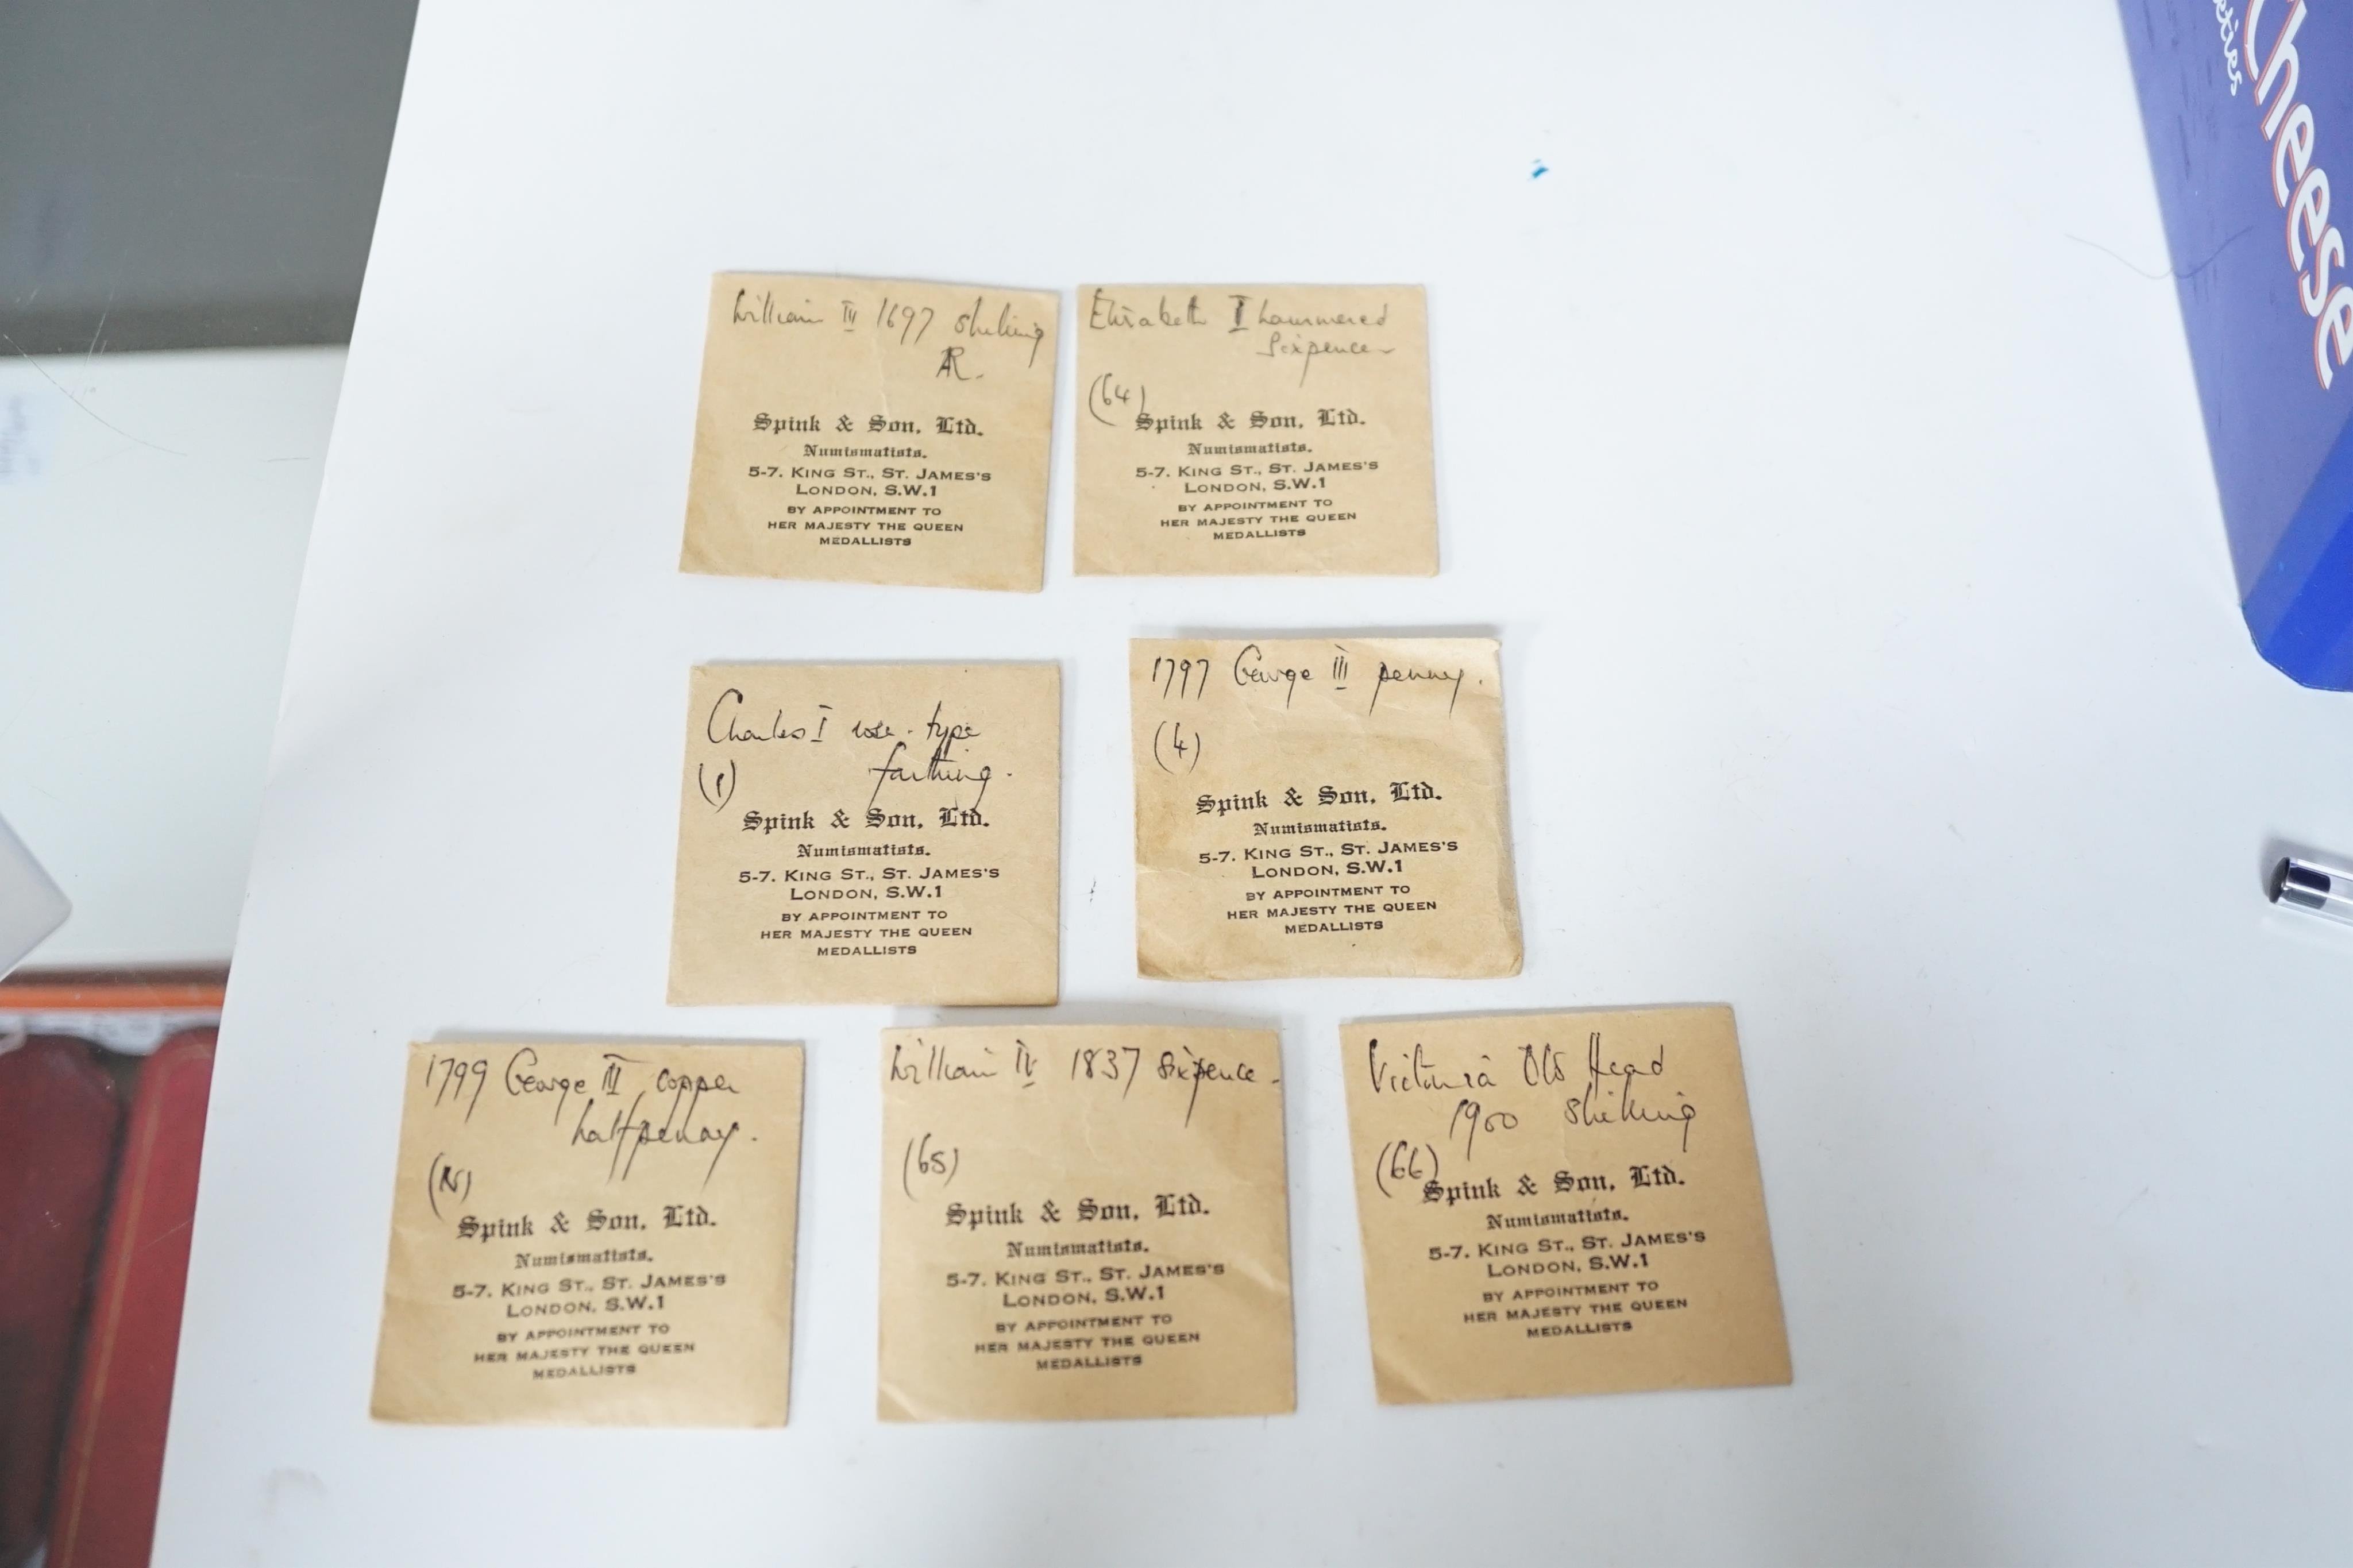 William III 1697 shilling
AR.
Spink & Son, Ltd.
Numismatists.
5-7. KING ST., ST. JAMES'S
LONDON, S.W.1
BY APPOINTMENT TO
HER MAJESTY THE QUEEN
MEDALLISTS
Elizabeth I hammered
Sixpence
(64)
Spink & Son, Ltd.
Numismatists.
5-7. KING ST., ST. JAMES'S
LONDON, S.W.1
BY APPOINTMENT TO
HER MAJESTY THE QUEEN
MEDALLISTS
Charles I rose-type
(1) farthing.
Spink & Son, Ltd.
Numismatists.
5-7. KING ST., ST. JAMES'S
LONDON, S.W.1
BY APPOINTMENT TO
HER MAJESTY THE QUEEN
MEDALLISTS
1797 George III penny.
(4)
Spink & Son, Ltd.
Numismatists.
5-7. KING ST., ST. JAMES'S
LONDON, S.W.1
BY APPOINTMENT TO
HER MAJESTY THE QUEEN
MEDALLISTS
1799 George III copper
halfpenny.
Spink & Son, Ltd.
Numismatists.
5-7. KING ST., ST. JAMES'S
LONDON, S.W.1
BY APPOINTMENT TO
HER MAJESTY THE QUEEN
MEDALLISTS
William IV 1837 sixpence.
(65)
Spink & Son, Ltd.
Numismatists.
5-7. KING ST., ST. JAMES'S
LONDON, S.W.1
BY APPOINTMENT TO
HER MAJESTY THE QUEEN
MEDALLISTS
Victoria Old Head
1900 shilling
(66)
Spink & Son, Ltd.
Numismatists.
5-7. KING ST., ST. JAMES'S
LONDON, S.W.1
BY APPOINTMENT TO
HER MAJESTY THE QUEEN
MEDALLISTS
Cheese